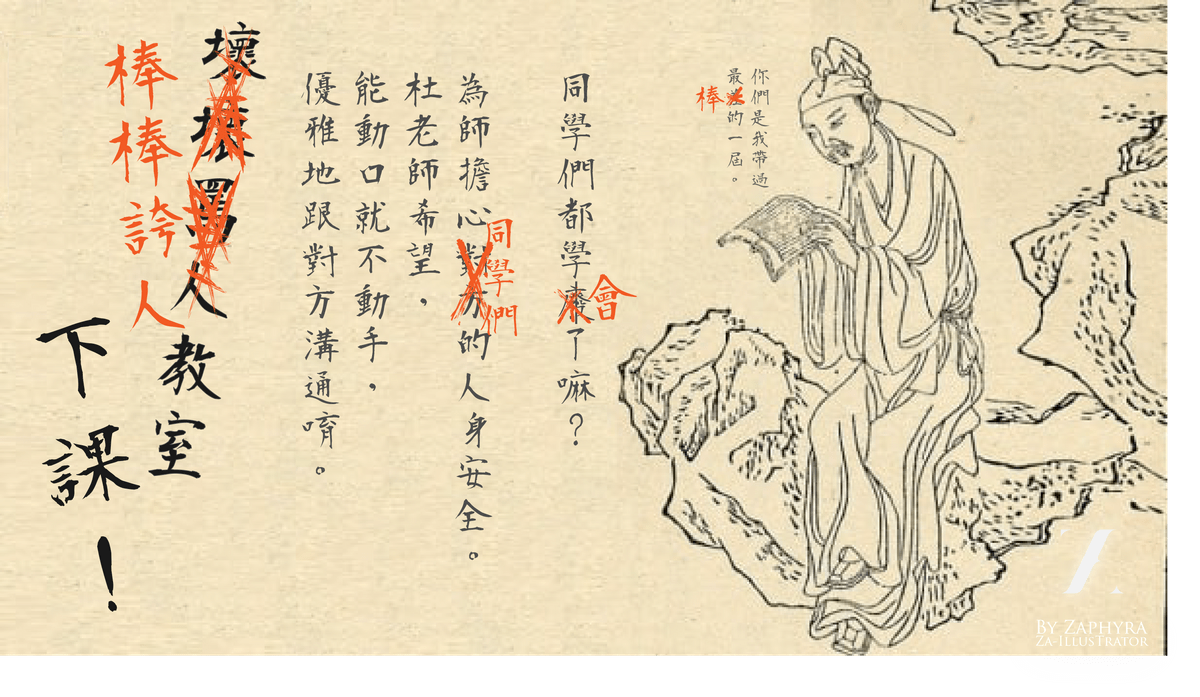 你們是我帶過
最的一屆。
棒
同學們都學了嘛？
會
為師擔心對方的人身安全。
同學們
杜老師希望，
能動口就不動手，
優雅地跟對方溝通唷。
壞壞罵人
棒棒誇人
教室
下課！
BY ZAPHYRA
ZA-ILLUSTRATOR